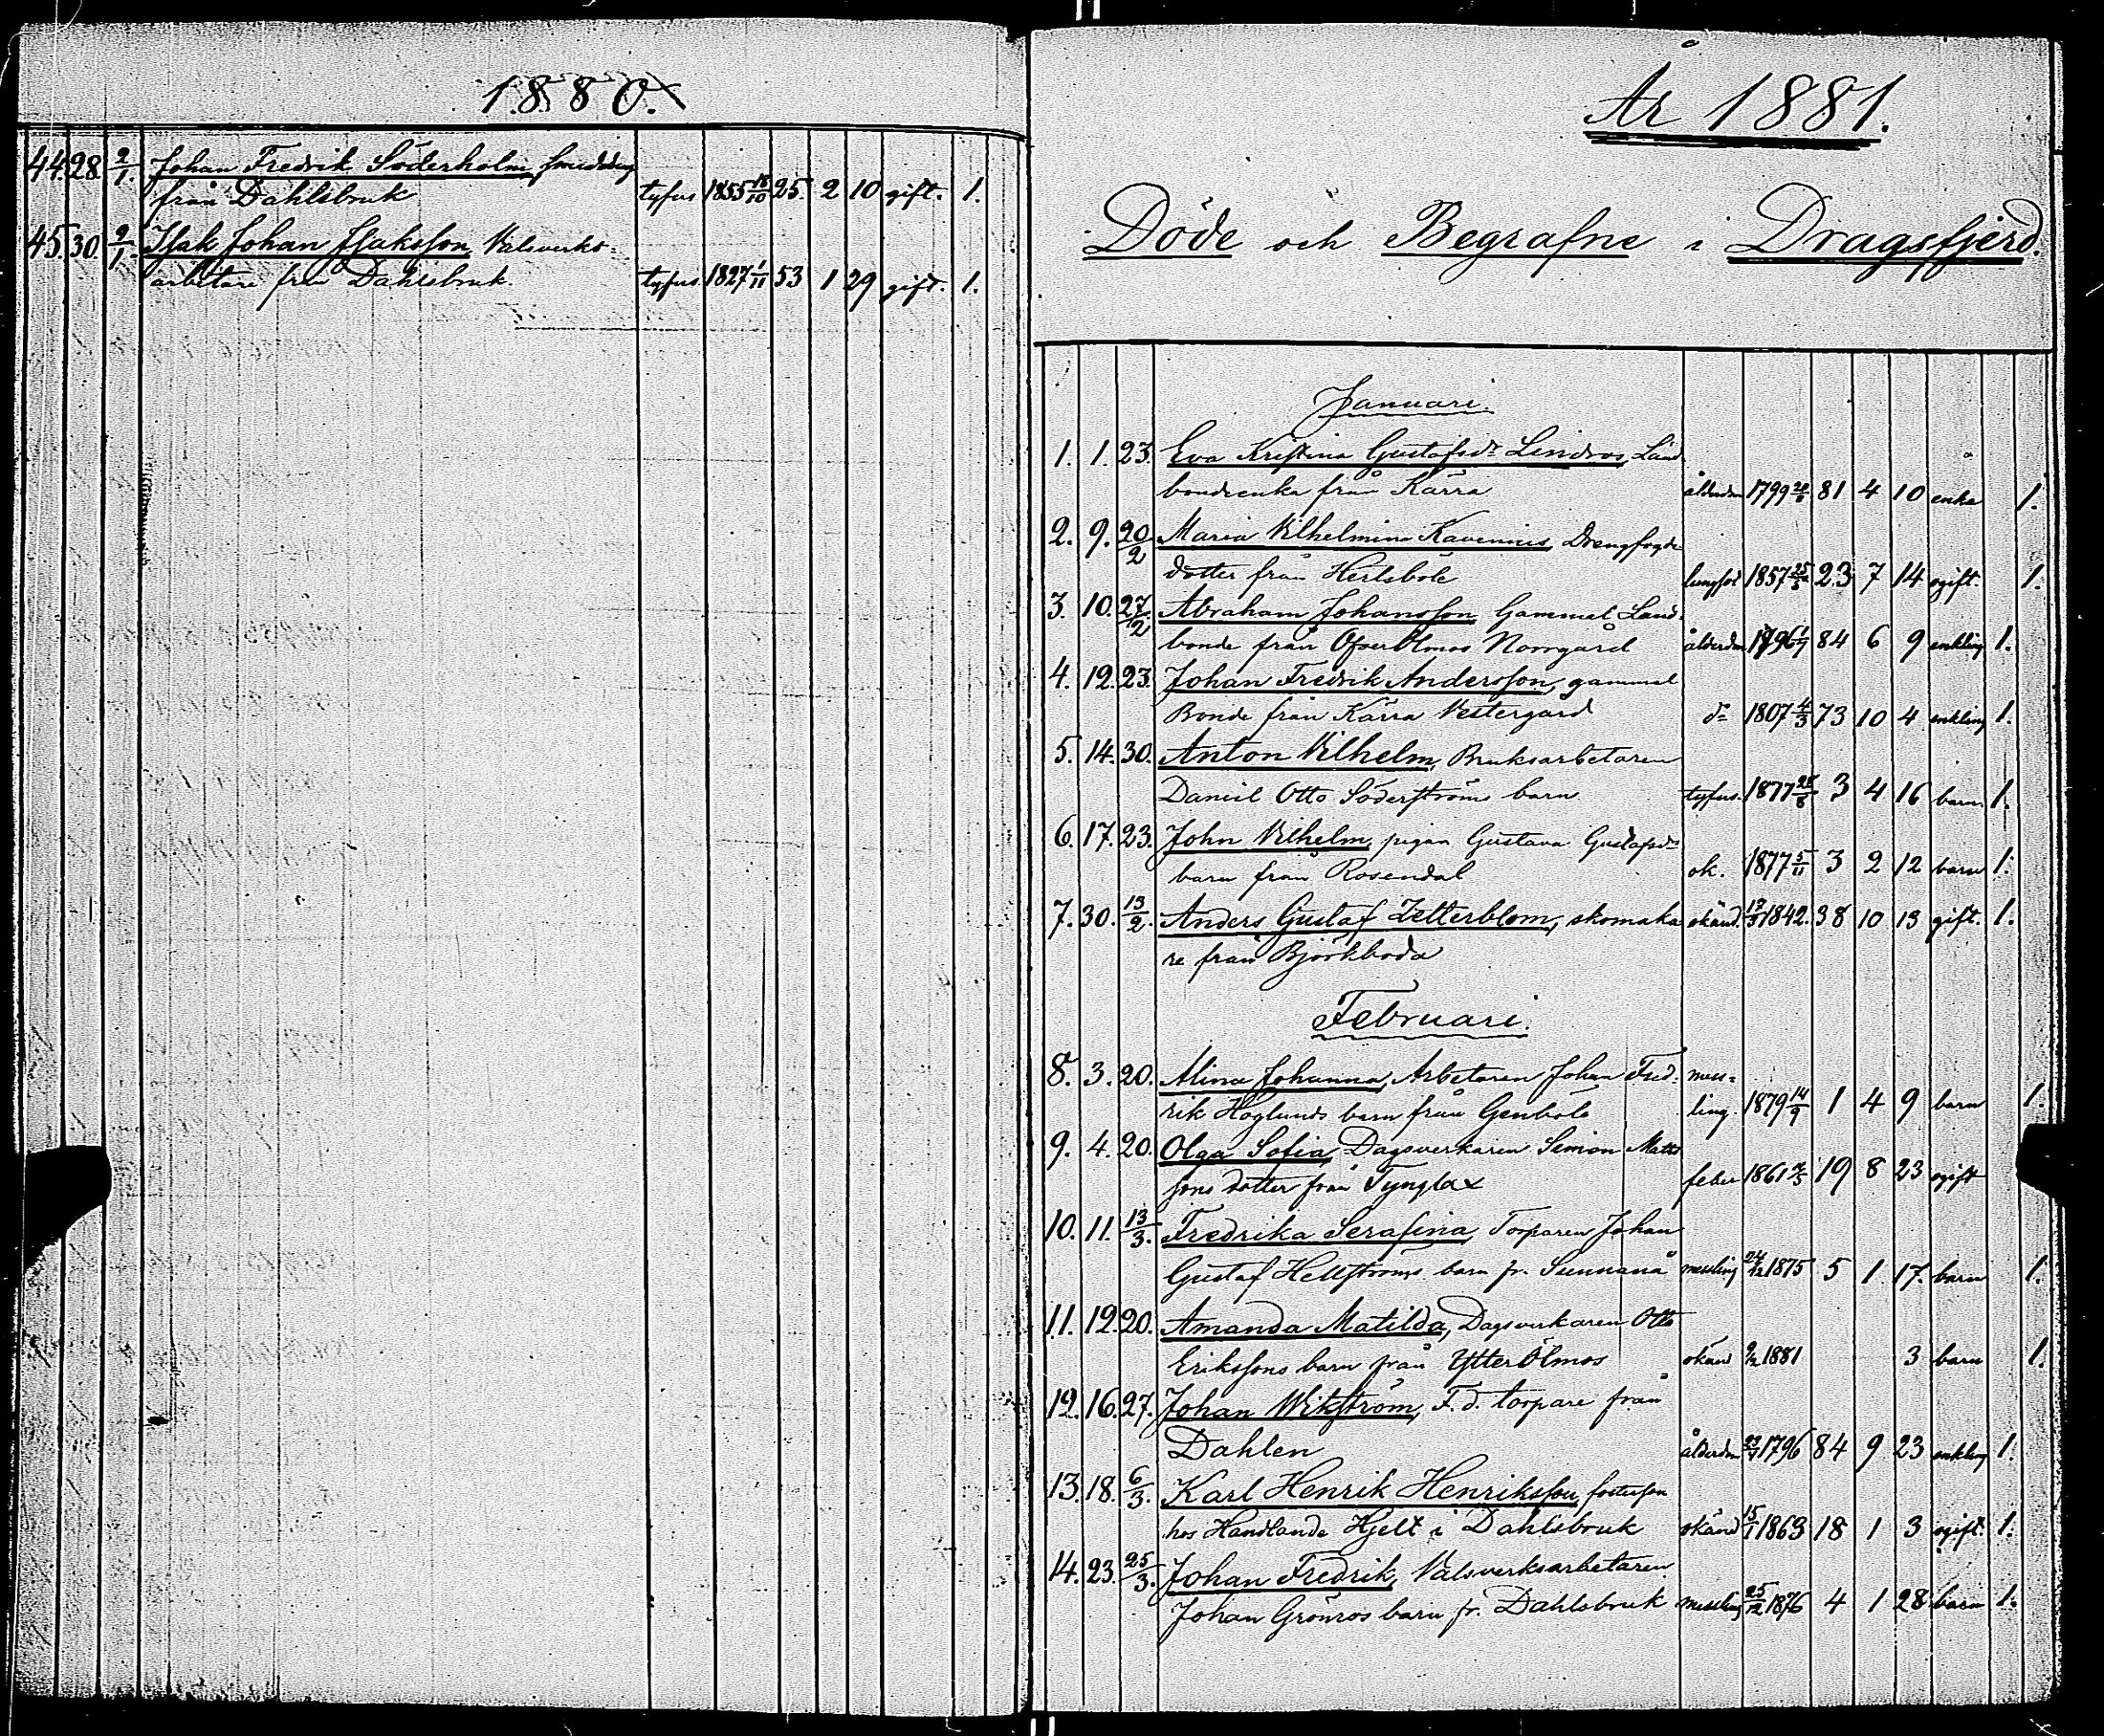 1880.
44. 28. 2/1. Johan Fredrik Söderholm, smeddräng
från Dahlsbruk tyfus 1855 18/10 25. 2 10 gift. 1.
45. 30. 9/1. Isak Johan Isaksson, Valsverks-
arbetare från Dahlsbruk. tyfus. 1827 1/11 53 1 29 gift. 1.
År 1881.
Döde och Begrafne i Dragsfjerd.
Januari.
1. 1. 23. Eva Kristina Gustafsdr Lindros, Land
bondeenka från Kärra ålderdm 1799 81 4 10 enka 1.
2. 9. 20/2 Maria Vilhelmina Kavenius, Drengfogde
dotter från Hertsböle lungsot 1857 25/5 23 7 14 ogift. 1.
3. 10. 27/2 Abraham Johansson, Gammal Land-
bonde från Öfverölmos Norrgård ålderdm 1796 1/7 84 6 9 enkling 1.
4. 12. 23. Johan Fredrik Andersson, gammal
Bonde från Kärra Vestergård do 1807 4/3 73 10 4 enkling 1.
5. 14. 30. Anton Vilhelm, Bruksarbetaren
Daniel Otto Söderströms barn tyfus. 1877 28/8 3 4 16 barn. 1.
6. 17. 23. John Vilhelm, pigan Gustava Gustafsdrs
barn från Rosendal ok. 1877 5/11 3 2 12 barn 1.
7. 30. 13/2. Anders Gustaf Zetterblom, skomaka- okänd. 17/3 1842. 38 10 13 gift. 1.
re från Björkboda
Februari.
8. 3. 20. Alina Johanna, Arbetaren Johan Fred- mess-
rik Höglunds barn från Genböle ling. 1879 14/9 1 4 9 barn 1.
9. 4. 20. Olga Sofia, Dagsverkaren Simon Matts
sons dotter från Tynglax feber 1861 19 8 23 ogift
10. 11. 13/3. Fredrika Serafina, Torparen Johan
Gustaf Hellströms barn fr. Sunnanå messling 24/12 1875 5 1 17. barn 1.
11. 12. 20. Amanda Matilda, Dagsverkaren Otto
Erikssons barn från Ytterölmos okänd 9/2 1881 3 barn 1.
12. 16. 27. Johan Wikström, F. d. torpare från
Dahlen ålderdm 23/4 1796 84 9 23 enkling 1.
13. 18. 6/3. Karl Henrik Henriksson, fosterson
hos Handlande Hjelt i Dahlsbruk okänd 15/1 1863 18 1 3 ogift. 1.
14. 23. 25/3. Johan Fredrik, Valsverksarbetaren
Johan Grönros barn fr. Dahlsbruk messling 25/12 1876 4 1 28 barn 1.